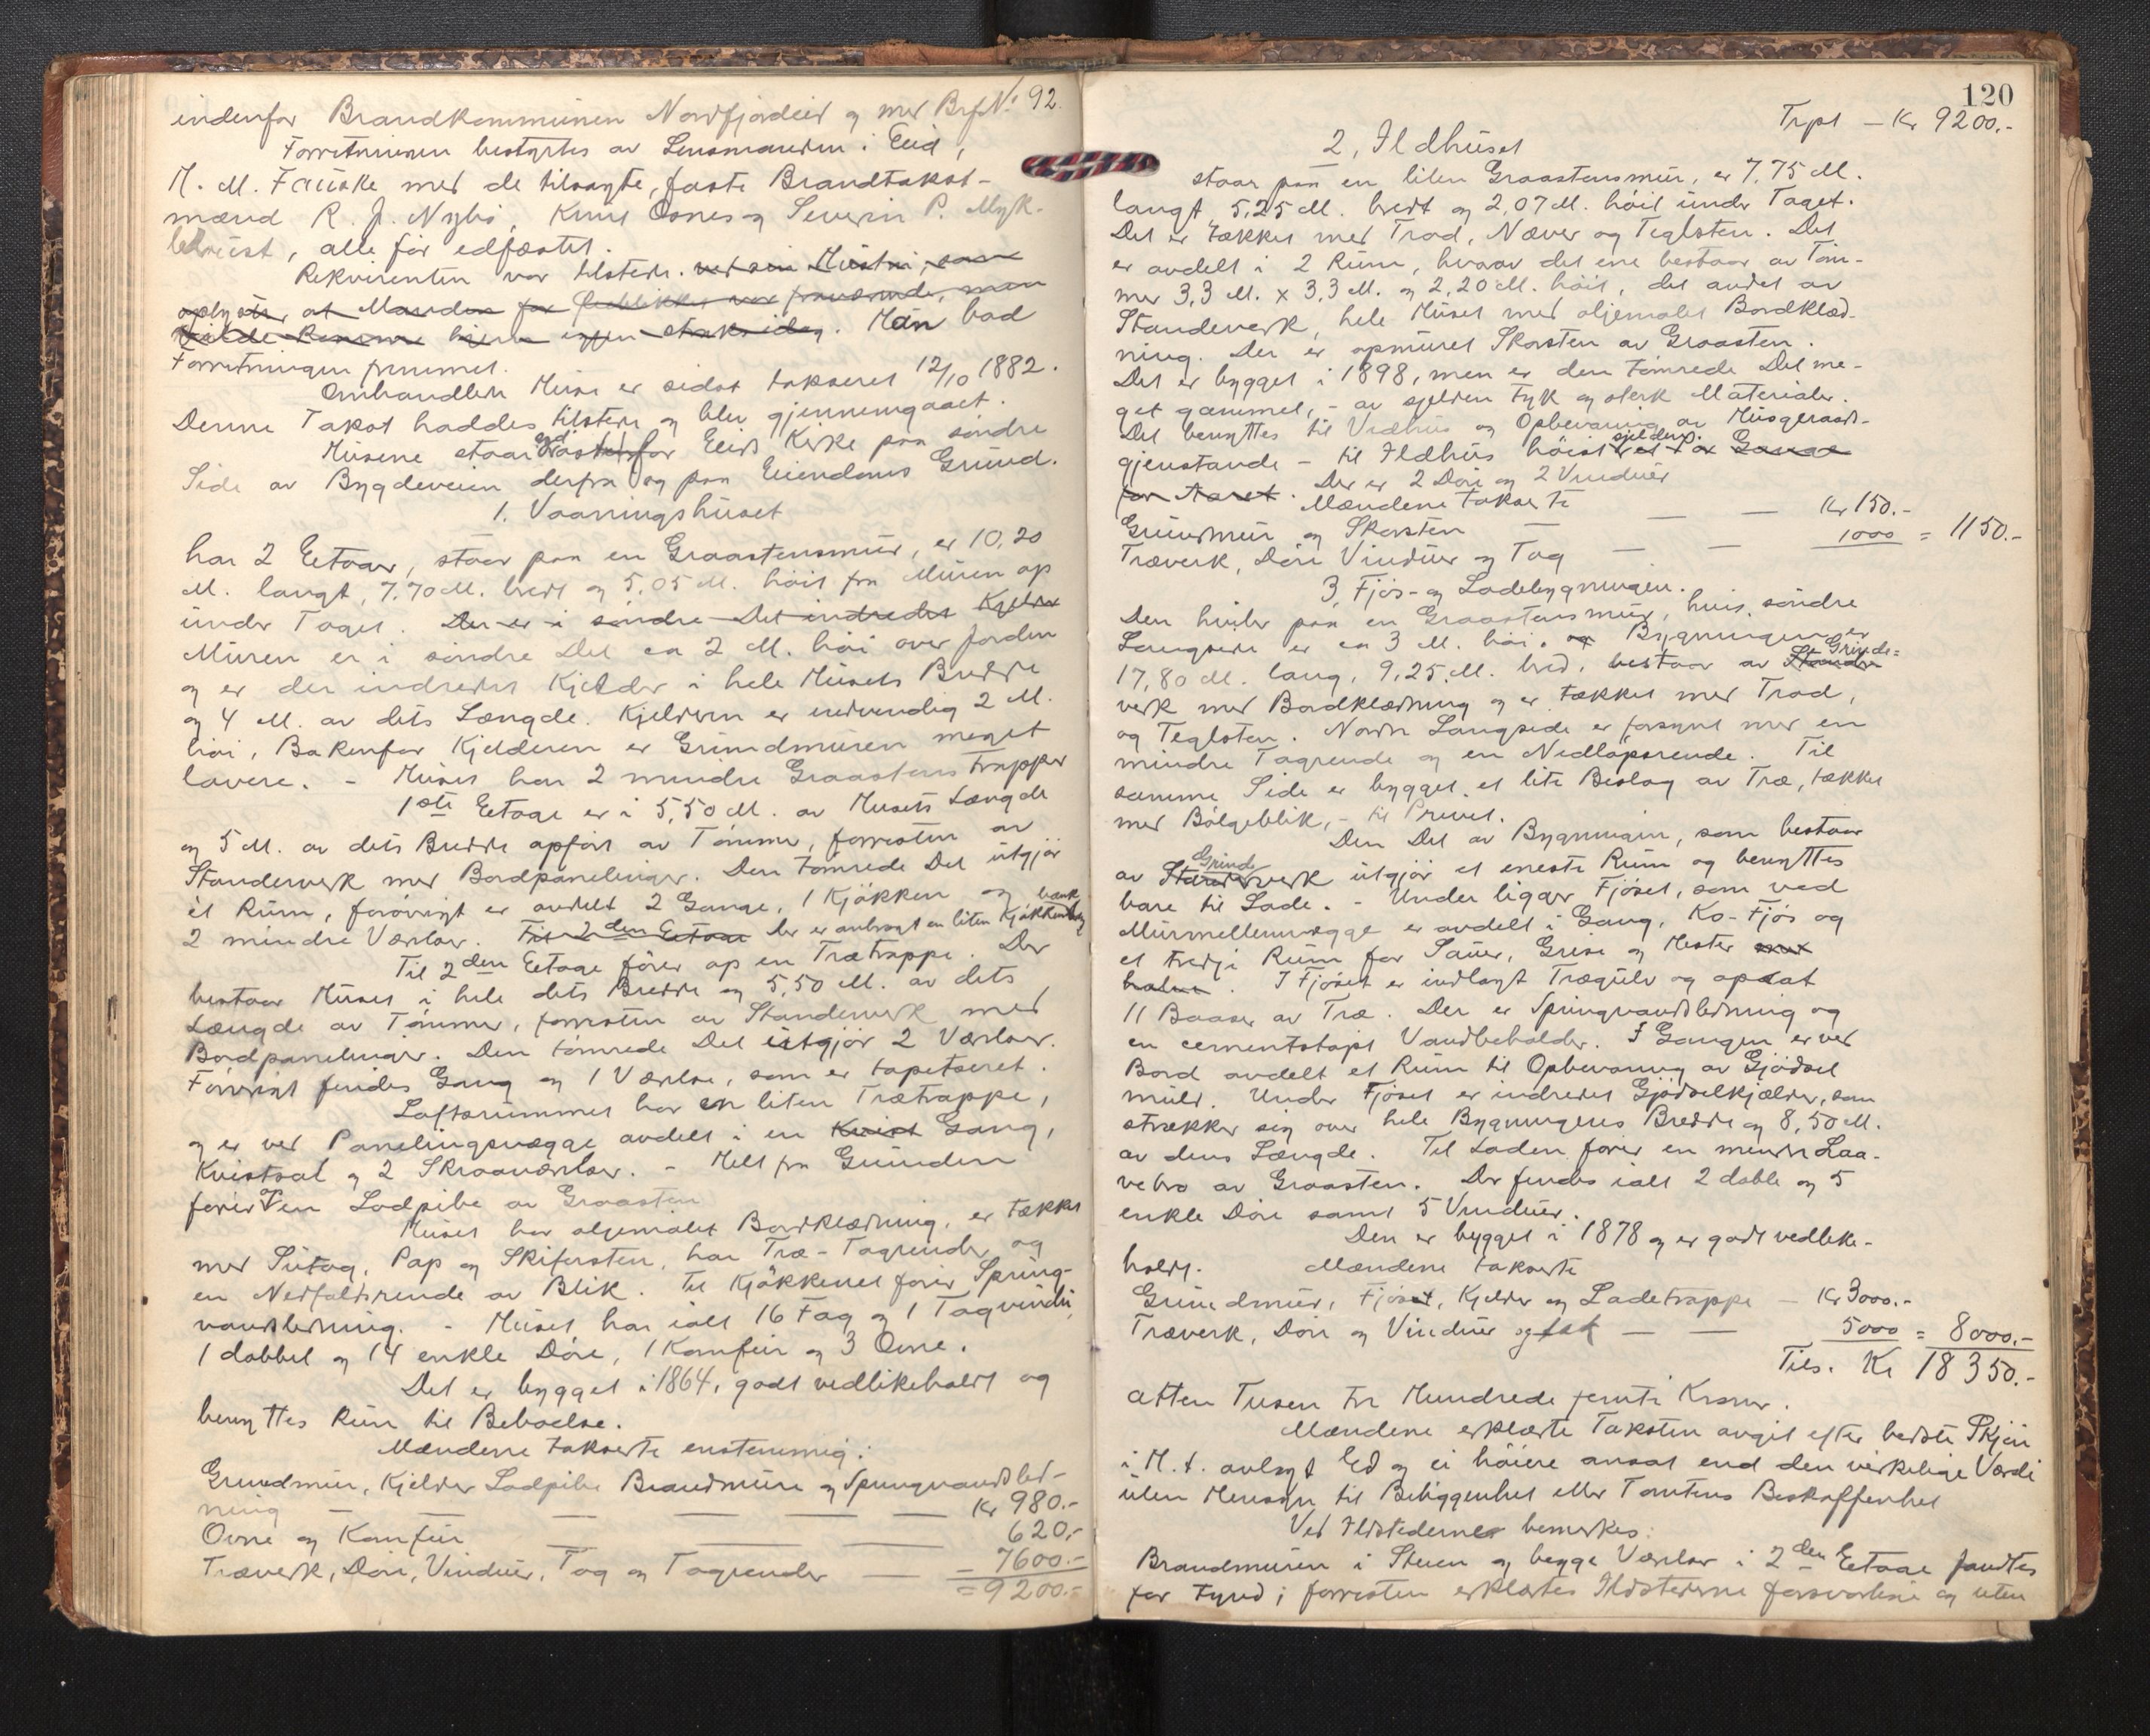 indenfor Brandkommunen Nordfjordeid og med Brf. No. 92.
Forretningen bestyrtes av Lensmanden i Eid,
M. M. Fauske med de tilsagte, faste Brandtakst-
mænd R. J. Nybø, Knut Osnes og Severin P. Myk-
lebust, alle før edfæstet.
Rekvirenten var tilstede. ved sin Hustru, som
oplyste, at Manden for Øieblikket var fraværende, men
vilde komme hjem igjen straks idag. Han bad
Forretningen fremmet.
Omhandlede Huse er sidst takseret 12/10 1882.
Denne Takst haddes tilstede og blev gjennemgaaet.
Husene staar østenfor Eids Kirke paa søndre
Side av Bygdeveien derfra og paa Eiendoms Grund.
1. Vaaningshuset
har 2 Eetager, staar paa en Graastensmur, er 10,20
M. langt, 7,70 M. bredt og 5,05 M. høit fra Muren op
under Taget. Der er i søndre Del indredet Kjelder
Muren er i søndre Del ca 2 M. høi over Jorden
og er der indredet Kjelder i hele Husets Bredde
og 4 M. av dets Længde. Kjelderen er indvendig 2 M.
høi, Bakenfor Kjelderen er Grundmuren meget
lavere. - Huset har 2 mindre Graastens Trapper
1ste Eetage er i 5,50 M. av Husets Længde
og 5 M. av dets Bredde opført av Tømmer, forresten av
Standerverk med Bordpanelinger. Den tømrede Del utgjør
et Rum, forøvrigt er avdelt 2 Gange, 1 Kjøkken og
2 mindre Værelser. Til 2den Eetage der er anbragt en liten Kjøkken
Til 2den Eetage fører op en Trætrappe. Der
bestaar Huset i hele dets Bredde og 5,50 M. av dets
Længde av Tømmer, forresten av Standerverk med
Bordpanelinger. Den tømrede Del utgjør 2 Værelser.
Forøvrigt findes Gang og 1 Værelse, som er tapetseret.
Loftsrummet har en liten Trætrappe,
og er ved Panelingsvægge avdelt i en Kvist Gang,
Kvistsal og 2 Skraaværelser. - Helt fra Grunden
fører op en Lodpibe av Graasten
Huset har oljemalet Bordklædning, er tækket
med Sutag, Pap og Skifersten, har Træ-Tagrender og
en Nedfaldsrende av Blik. Til Kjøkkenet fører Spring-
vandsledning. - Huset har ialt 16 Fag og 1 Tagvindu,
1 dobbel og 14 enkle Døre, 1 Komfur og 3 Ovne.
Det er bygget i 1864, godt vedlikeholdt og
benyttes kun til Beboelse.
Mændene takserte enstemmig:
Grundmur, Kjelder Lodpibe Brandmure og Springvandsled-
ning — — — — — Kr 980.-
Ovne og Komfur — — 620.-
Træverk, Døre, Vinduer, Tag og Tagrender — - 7600.-
= 9200.-
120
Trpt — Kr 9200.-
2, Ildhuset
staar paa en liten Graastensmur, er 7,75 M.
langt, 5,25 M. bredt og 2,07 M. høit under Taget.
Det er tækket med Trod, Næver og Teglsten. Det
er avdelt i 2 Rum, hvorav det ene bestaar av Tøm-
mer 3,3 M. x 3,3 M. og 2,20 M. høit, det andet av
Standerverk, hele Huset med oljemalet Bordklæd-
ning. Der er opmuret Skorsten av Graasten.
Det er bygget i 1898, men er den tømrede Del me-
get gammel, - av sjelden tyk og sterk Materialer.
Det benyttes til Vedhus og Opbevaring av Husgeraads-
gjenstande - til Ildhus høist sjelden. et Par Gange
for Aaret. Der er 2 Døre og 2 Vinduer
Mændene takserte
Grundmur og Skorsten — — — Kr 150.-
Træverk, Døre Vinduer og Tag — — 1000 = 1150.-
3, Fjøs- og Ladebygningen.
Den hviler paa en Graastensmur, hvis søndre
Langside er ca 3 M. høi. Bygningen er
17,80 M. lang, 9,25 M. bred, bestaar av Stander Grinde-
verk med Bordklædning og er tækket med Trod,
og Teglsten. Nordre Langside er forsynt med en
mindre Tagrende og en Nedløpsrende. Til
samme Side er bygget et lite Beslag av Træ, tækket
med Bølgeblik, - til Privet.
Den Del av Bygningen, som bestaar
av Grinde Standerverk utgjør et eneste Rum og benyttes
bare til Lade. - Under ligger Fjøset, som ved
Murmellemvægge er avdelt i Gang, Ko-Fjøs og
et tredje Rum for Sauer, Grise og Hester
. I Fjøset er indlagt Trægulv og opsat
11 Baaser av Træ. Der er Springvandsledning og
en cementstøpt Vandbeholder. I Gangen er ved
Bord avdelt et Rum til Opbevaring av Gjødsel
muld. Under Fjøset er indredet Gjødselkjælder, som
strækker sig over hele Bygningens Bredde og 8,50 M.
av dens Længde. Til Laden fører en mindre Laa-
vebro av Graasten. Der findes ialt 2 doble og 5
enkle Døre samt 5 Vinduer.
Den er bygget i 1878 og er godt vedlike-
holdt. Mændene takserte
Grundmur, Fjøset, Kjelder og Ladetrappe — Kr 3000.-
Træverk, Døre og Vinduer og tak — — 5000 = 8000.-
Tils. Kr 18350.-
Atten Tusen tre Hundrede femti Kroner.
Mændene erklærte Taksten avgit efter bedste Skjøn
i H. t. avlagt Ed og ei høiere ansat end den virkelige Værdi
uten Hensyn til Beliggenhet eller Tomtens Beskaffenhet
Ved Ildstederne bemerkes:
Brandmuren i Stuen og begge Værelser i 2den Eetage fandtes
for tynd; forresten erklærtes Ildstederne forsvarlige og uten